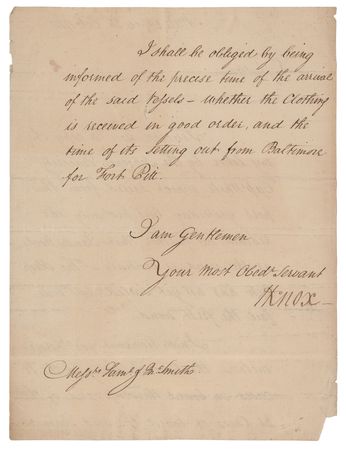 I shall be obliged by being
informed of the precise time of the arrival
of the said Vessels – whether the Clothing
is received in good order, and the
time of its Setting out from Baltimore
for Fort Pitt.
I am Gentlemen
Your most Obedt. Servant
HKnox
Messrs. Saml. & Jn. Smith